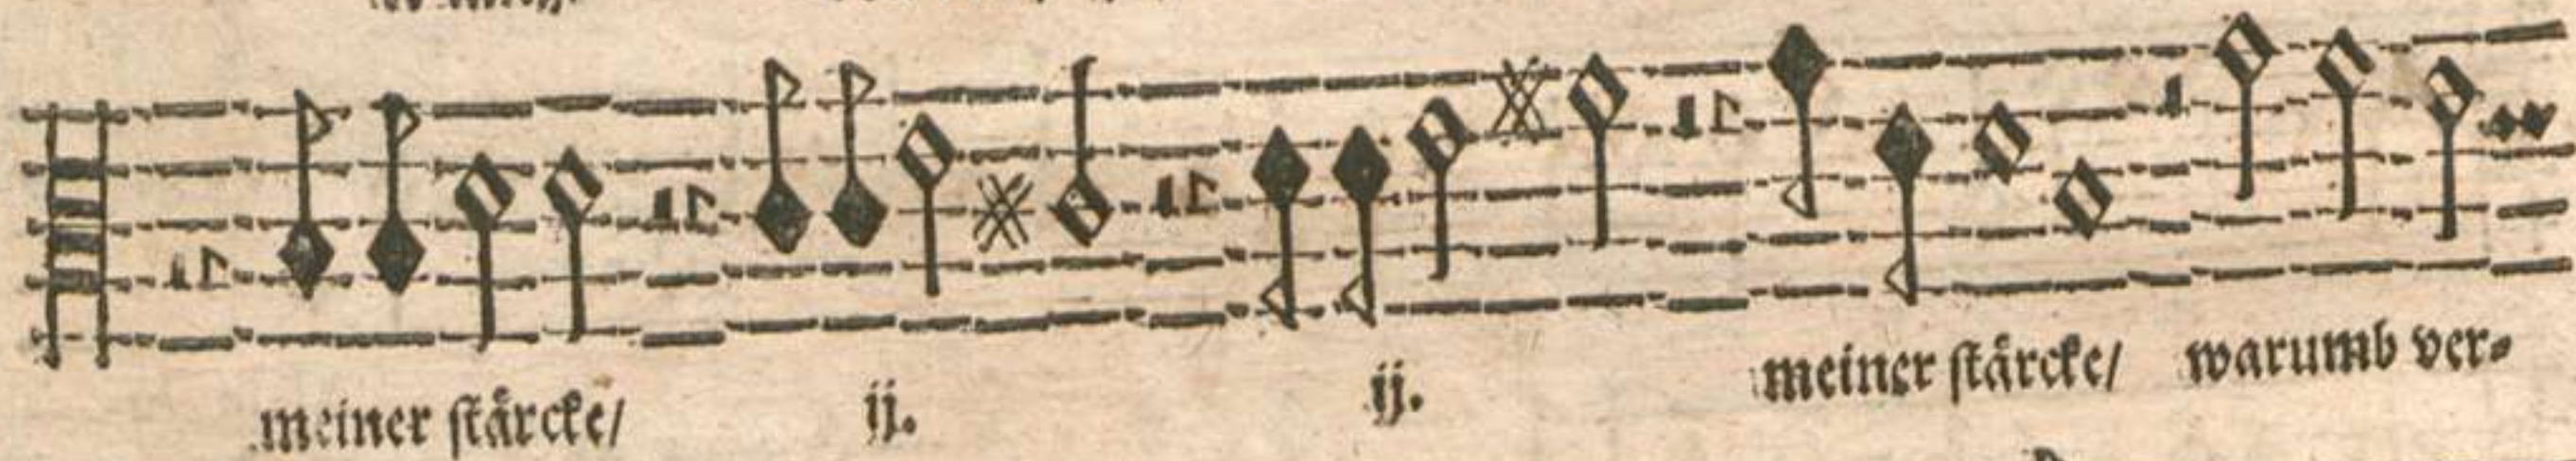 meiner stårcke/ ij. ij. meiner stårcke/ warumb ver⸗